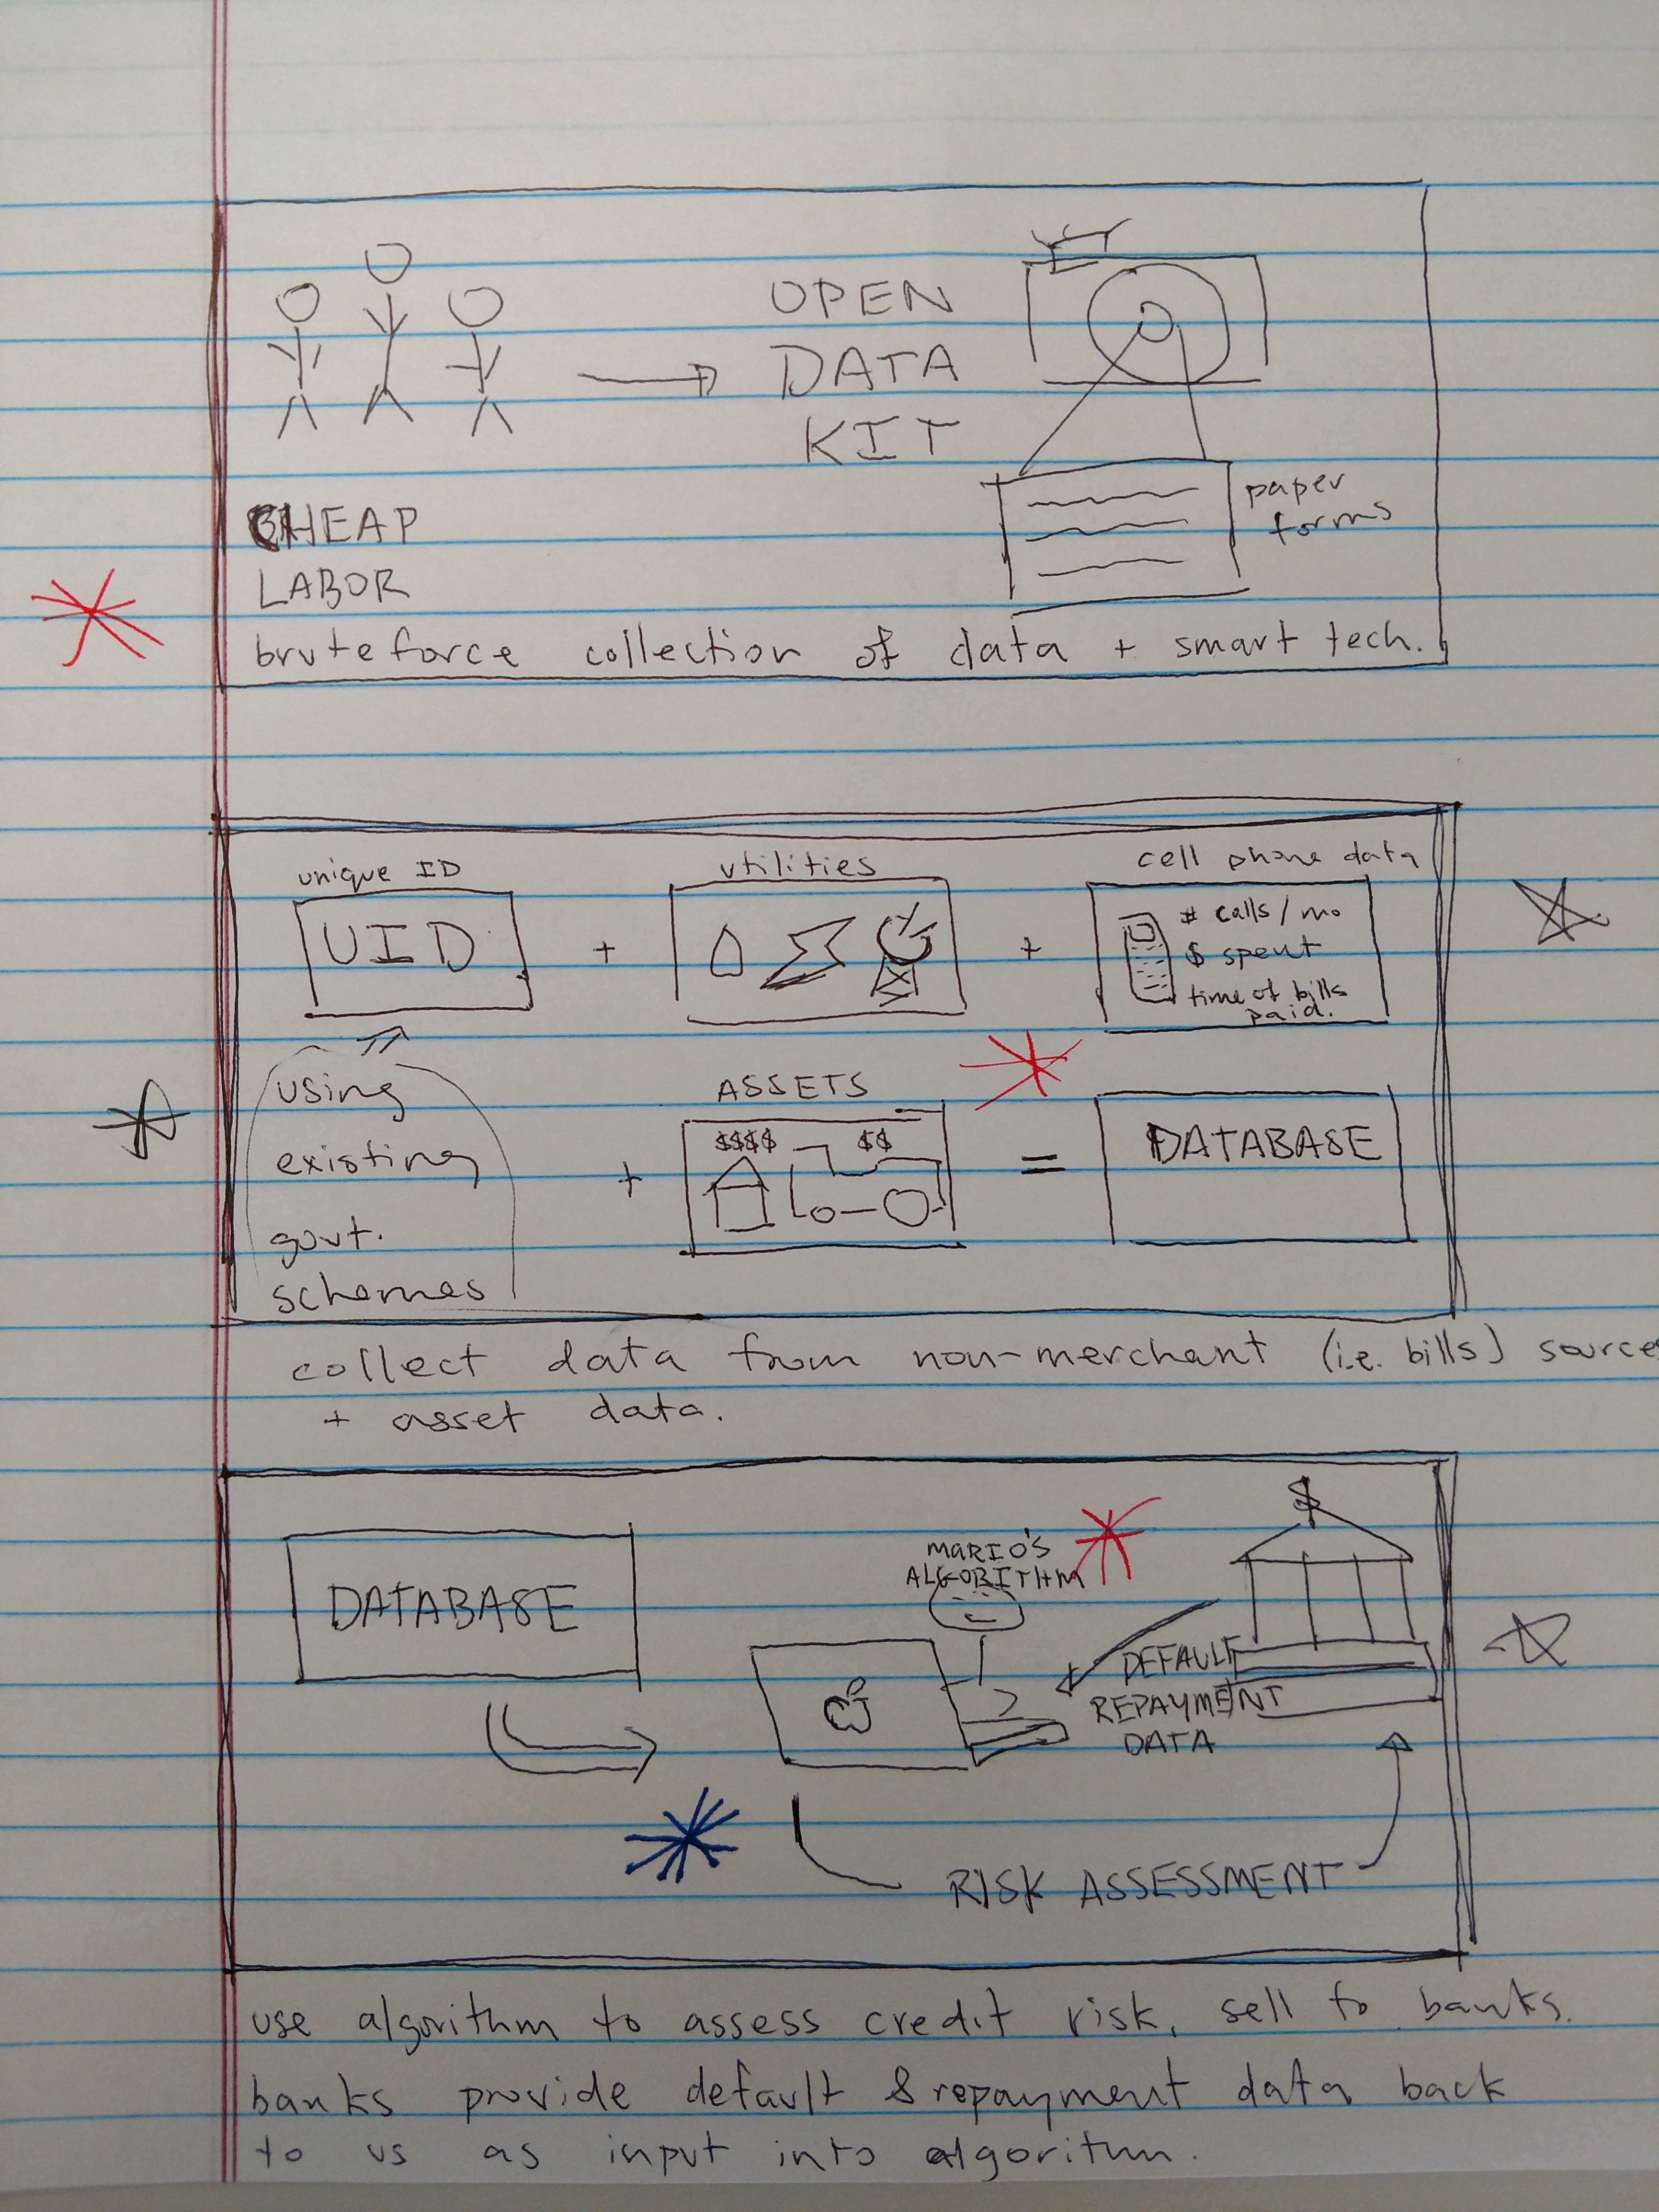 OPEN
DATA
KIT
paper
forms
CHEAP
LABOR
bruteforce collection of data + smart tech.
unique ID
utilities
cell phone data
UID
+
+
# calls / mo
$ spent
time of bills
paid.
using
existing
govt.
schemes
ASSETS
+
$$$$ $$
=
DATABASE
collect data from non-merchant (i.e. bills) sources
+ asset data.
DATABASE
MARIO'S
ALGORITHM
$
DEFAULT
REPAYMENT
DATA
RISK ASSESSMENT
use algorithm to assess credit risk, sell to banks.
banks provide default & repayment data back
to us as input into algorithm.